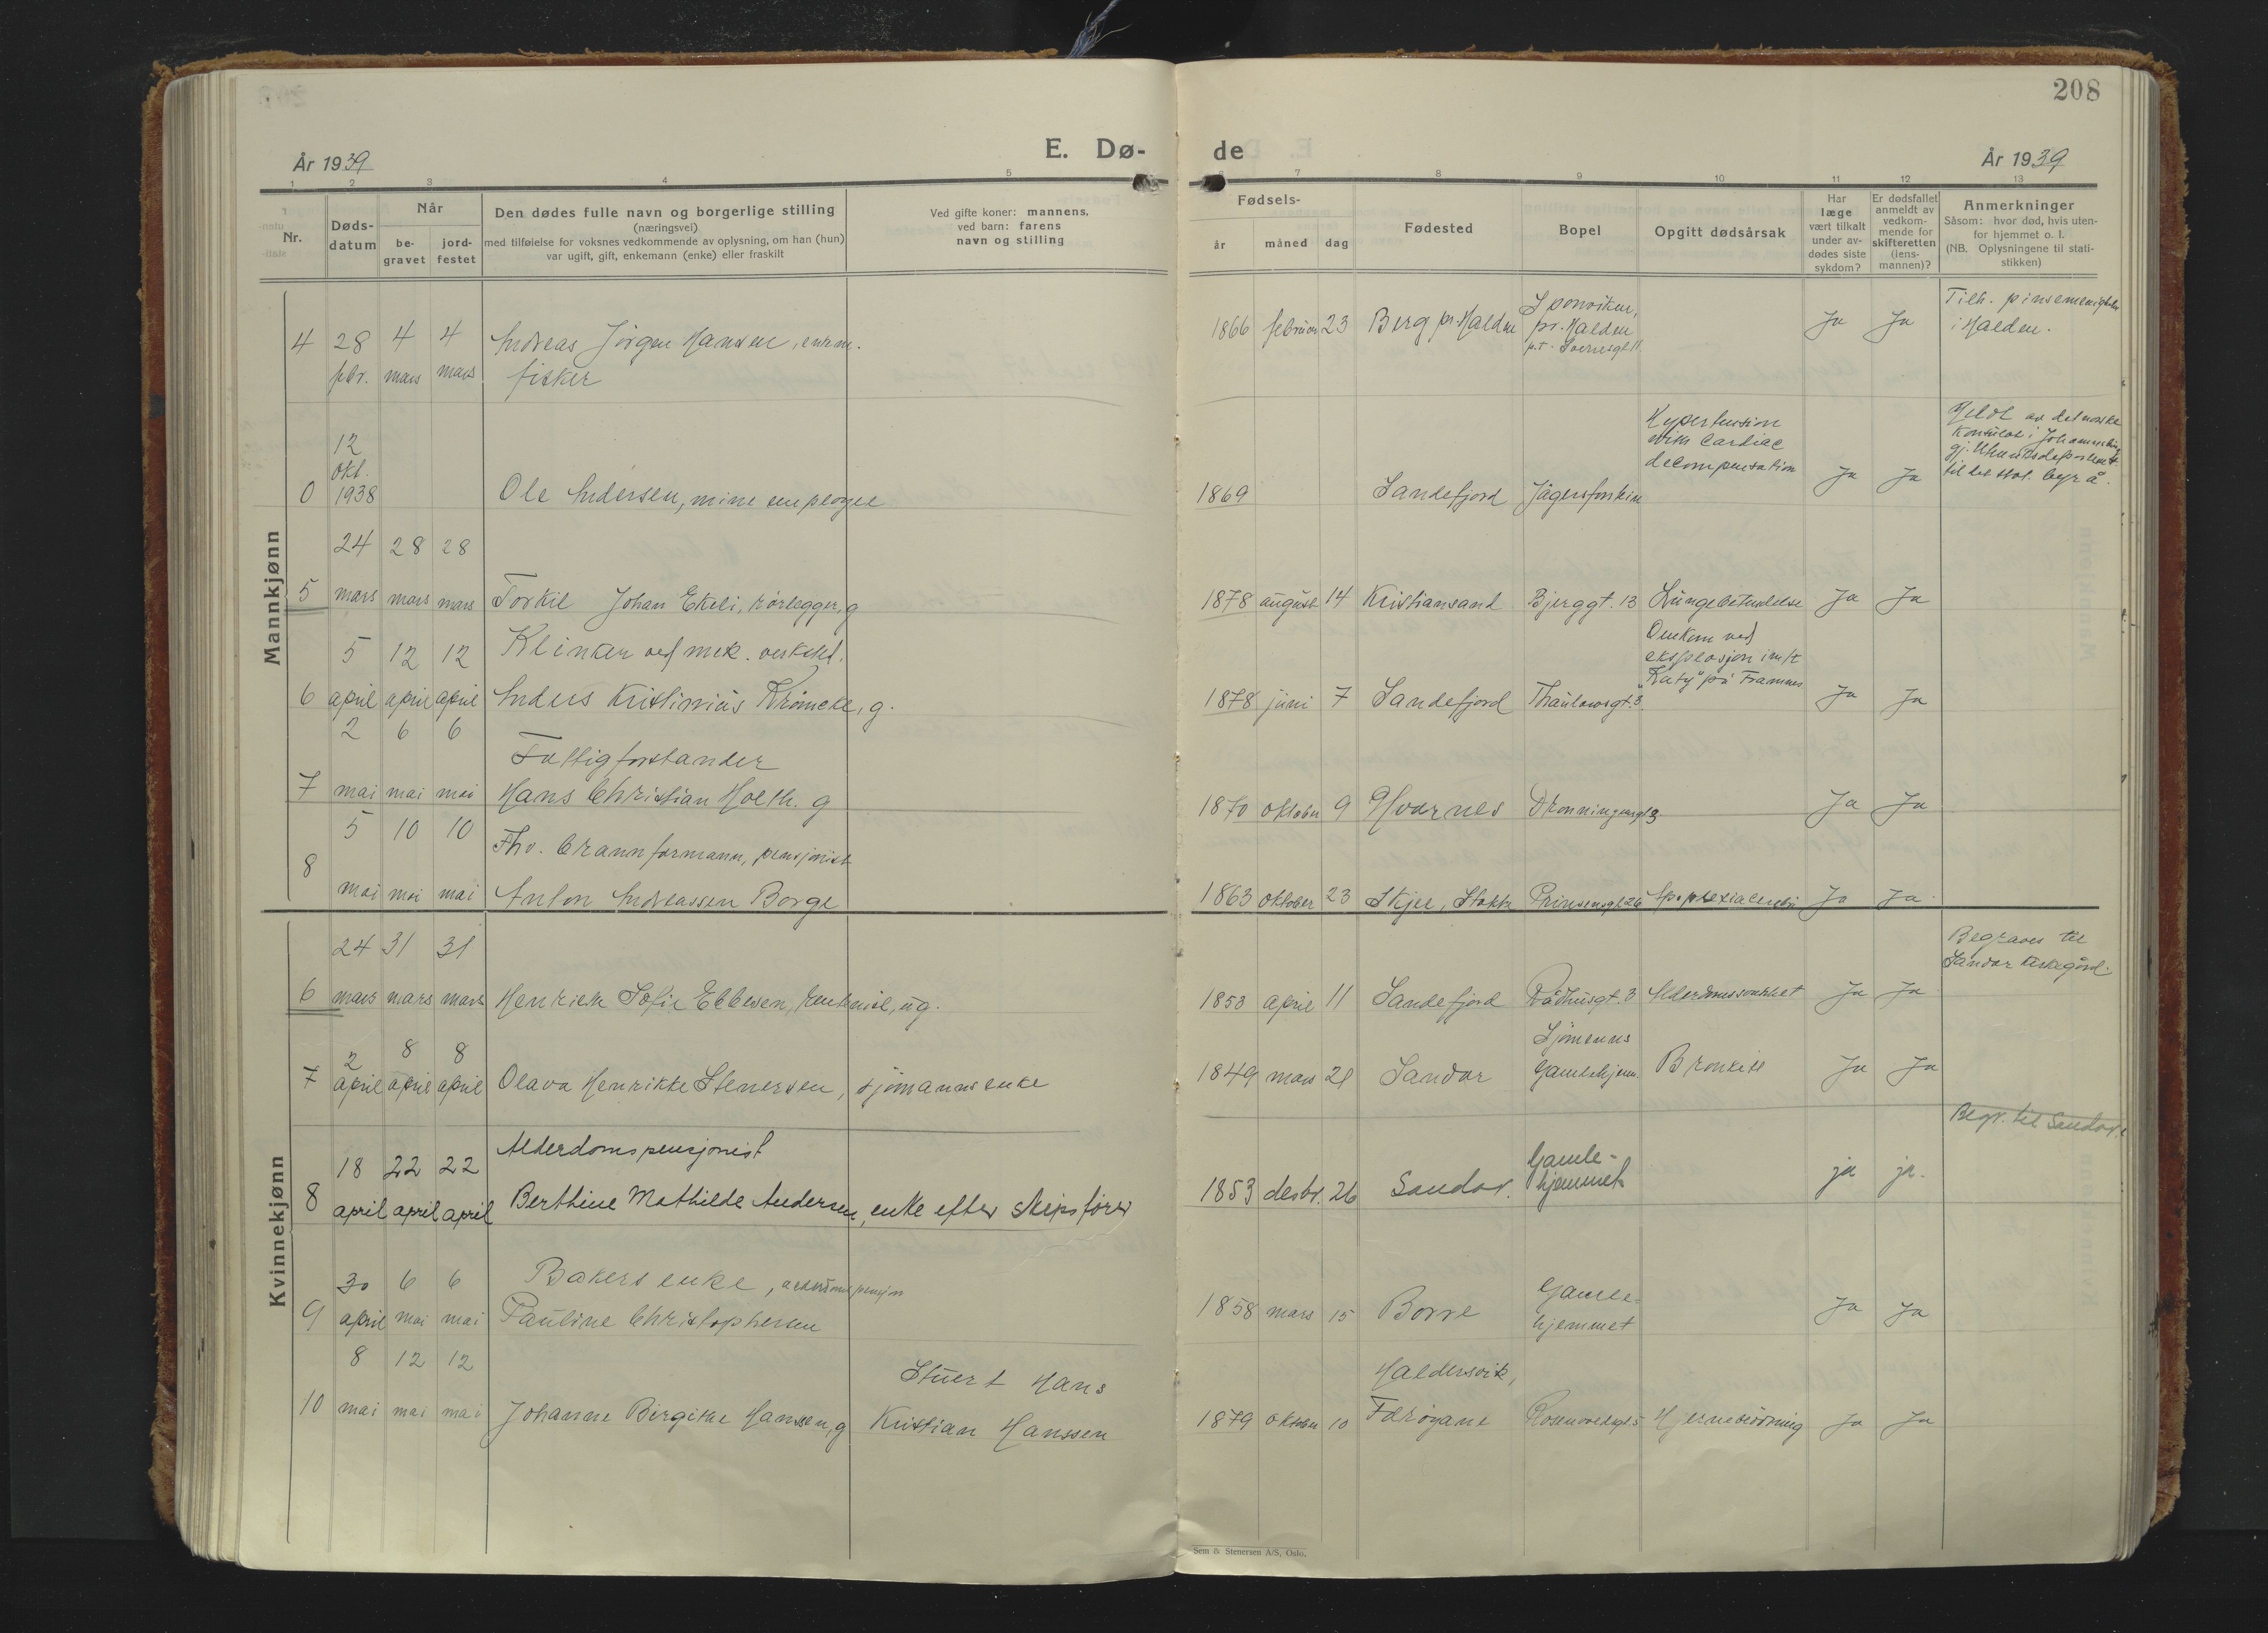 208
E. Dø-
de
År 1939
År 1939
1 2 3 4 5
6 7 8 9 10 11 12 13
Nr.
Døds-
datum
Når
be-
gravet
jord-
festet
Den dødes fulle navn og borgerlige stilling
(næringsvei)
med tilføielse for voksnes vedkommende av oplysning, om han (hun)
var ugift, gift, enkemann (enke) eller fraskilt
Ved gifte koner: mannens,
ved barn: farens
navn og stilling
Fødsels-
år måned dag
Fødested
Bopel
Opgitt dødsårsak
Har
læge
vært tilkalt
under av-
dødes siste
sykdom?
Er dødsfallet
anmeldt av
vedkom-
mende for
skifteretten
(lens-
mannen)?
Anmerkninger
Såsom: hvor død, hvis uten-
for hjemmet o. l.
(NB. Oplysningene til stati-
stikken)
Mannkjønn
4 28 4 4 Andreas Jörgen Hansen, enkem.
febr. mars mars fisker
1866 februar 23 Berg pr. Halden
Sponviken,
pr. Halden
p.t.
Ja Ja
Tilh. pinsemenigheten
i Halden.
12
okt.
0 1938 Ole Andersen, mine employee
1869 Sandefjord Jägersfontein
Hypertension
with Cardiac
decompensation
Ja Ja
Meldt av det norske
Konsulat i Johannesburg
gj. Utenriksdepartem.t
til det stat. byrå.
24 28 28
5 mars mars mars Torkil Johan Ekeli, rörlegger, g
1878 august 14 Kristiansand Bjerggt. 13 Lungebetendelse Ja Ja
5 12 12 Klinker ved mek. verksted.
6 april april april Anders Kristinius Krömcke, g.
1878 juni 7 Sandefjord Thaulowsgt. 3
Omkom ved
eksplosjon i m/t
"Katy" på Framnes
Ja Ja
2 6 6 Fattigforstander
7 mai mai mai Hans Christian Holth. g
1870 oktober 9 Hvarnes Dronningensgt 3 Ja Ja
5 10 10 Fhv. brannformann, pensjonist
8 mai mai mai Anton Andreassen Borge
1863 oktober 23 Skjee, Stokke Prinsensgt. 26 Apoplexia cerebri Ja Ja
Kvinnekjønn
24 31 31
6 mars mars mars Henriette Sofie Ebbesen, ug.
1853 april 11 Sandefjord Rådhusgt. 3 Alderdomssvakhet Ja Ja
Begraves til
Sandar kirkegård.
2 8 8
7 april april april Olava Henrikke Stenersen, sjömanns enke
1849 mars 21 Sandar
Sjömenns
Gamlehjem.
Bronkitt Ja Ja
18 22 22 Alderdomspensjonist
8 april april april Berthine Mathilde Andersen, enke efter skipsfører
1853 desbr. 26 Sandar.
Gamle-
hjemmet
ja ja.
Begr. til Sandar.
30 6 6 Bakers enke, alderdomspensjon
9 april mai mai Pauline Christophersen
1858 mars 15 Borre
Gamle-
hjemmet
Ja Ja
8 12 12
10 mai mai mai Johanne Birgitte Hanssen, g
Stuert Hans
Kristian Hanssen
1879 oktober 10
Haldersvik,
Færöyane
Hjerneblödning Ja Ja
Sem & Stenersen A/S, Oslo.